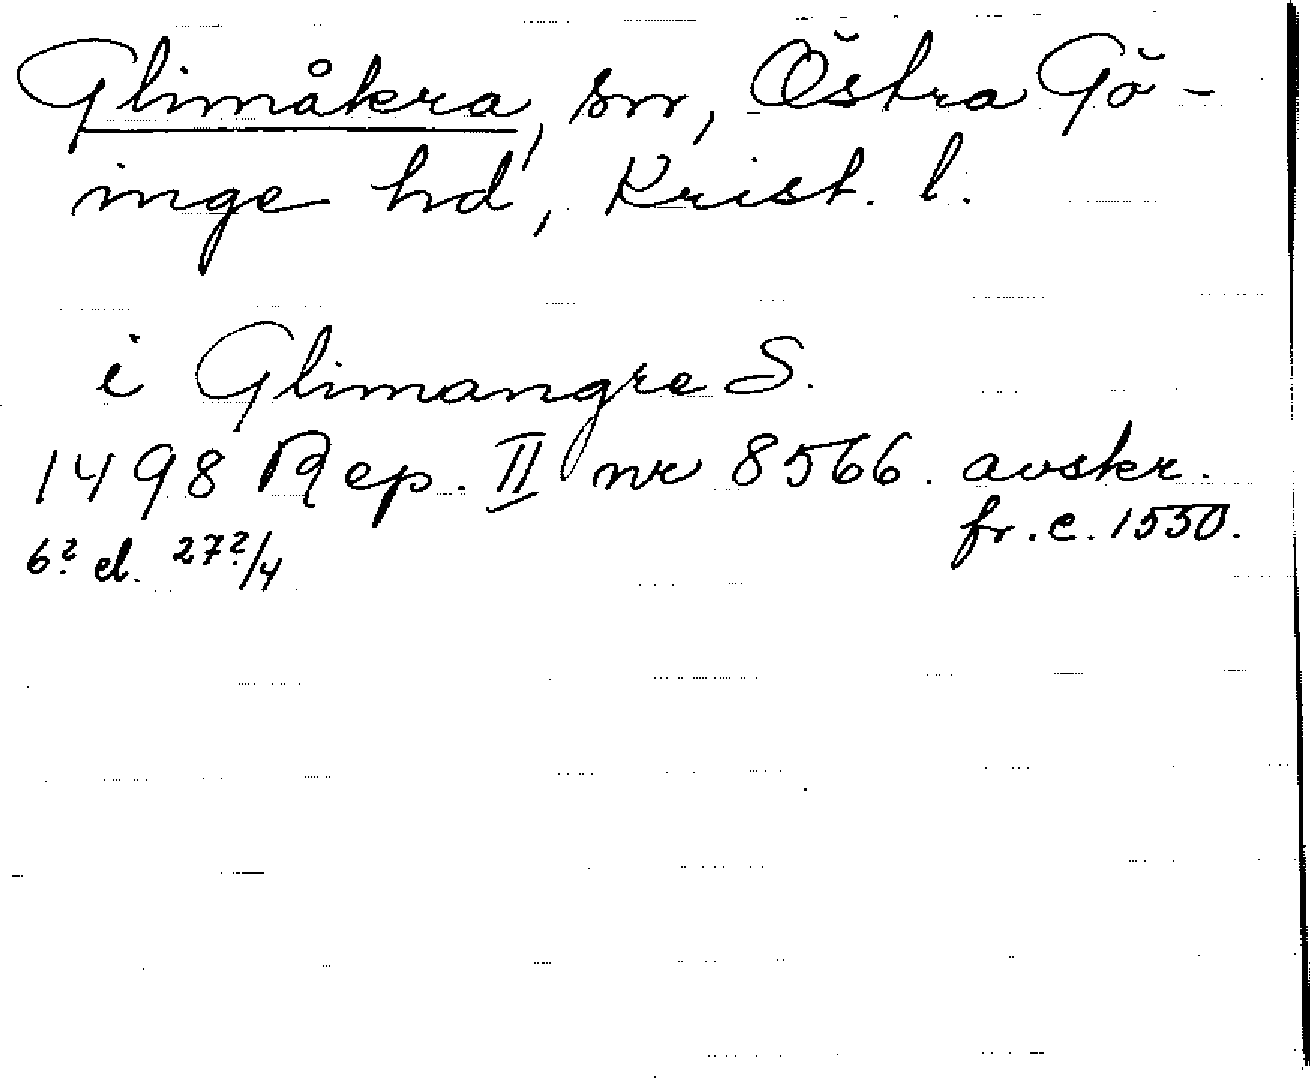 Glimåkra, sn, Östra Gö-
inge hd, Krist. l.
i Glimangre S.
1498 Rep. II nr 8566. avskr.
fr. c. 1550.
6? el. 27?/4